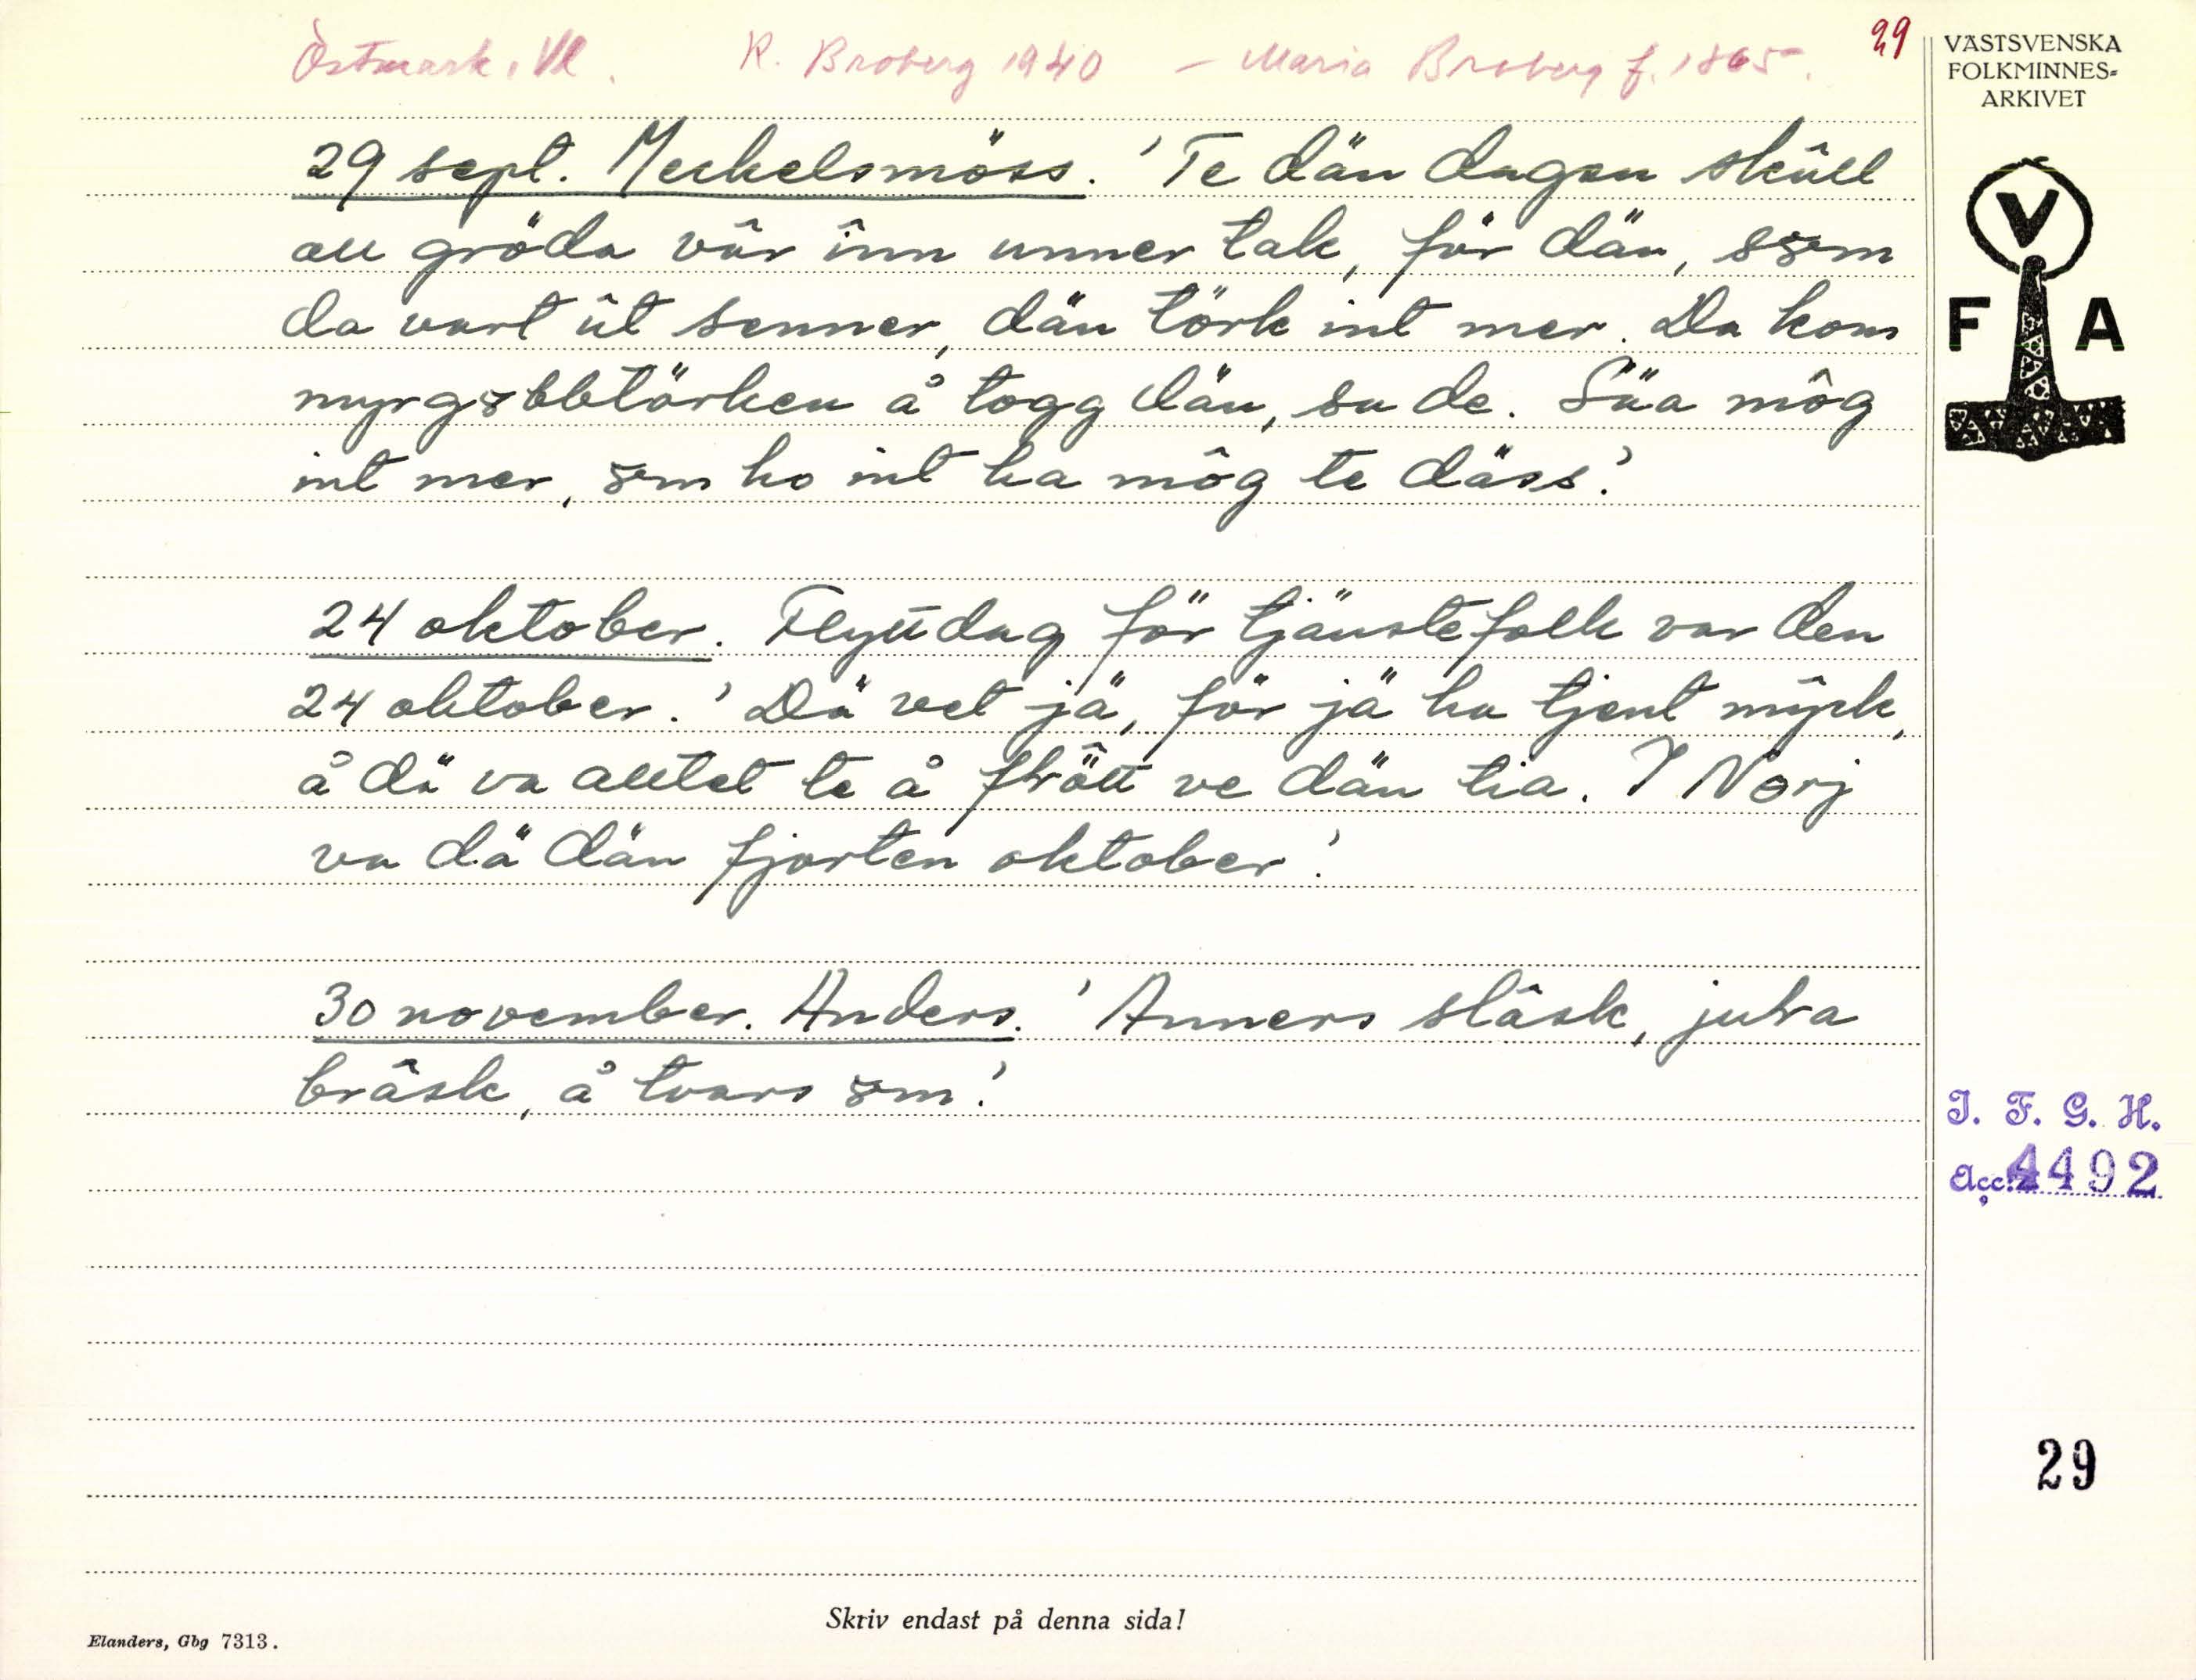 Östmark, Vl. R. Broberg 1940 - Maria Broberg f. 1865. 29
VÄSTSVENSKA
FOLKMINNES-
ARKIVET
29 sept. Meckelsmöss. 'Te dän dagen skûll
all gröda vâr înn unner tak, för dän, sôm
da vart ût senner, dän törk int mer. Da kom
myrgôbbtörken å togg dän, sa de. Säa môg
int mer, ôm ho int ha môg te däss.'
V
F A
24 oktober. Flyttdag för tjänstefolk var den
24 oktober. 'Dä vet jä, för jä ha tjent mŷck,
å dä va alltet te å flôtt ve dän tia. I Norj
va dä dän fjorten oktober.'
30 november. Anders. 'Anners slâsk, jula
brâsk, å tvars ôm.'
I. F. G. H.
Acc. 4492
29
Skriv endast på denna sida!
Elanders, Gbg 7313.